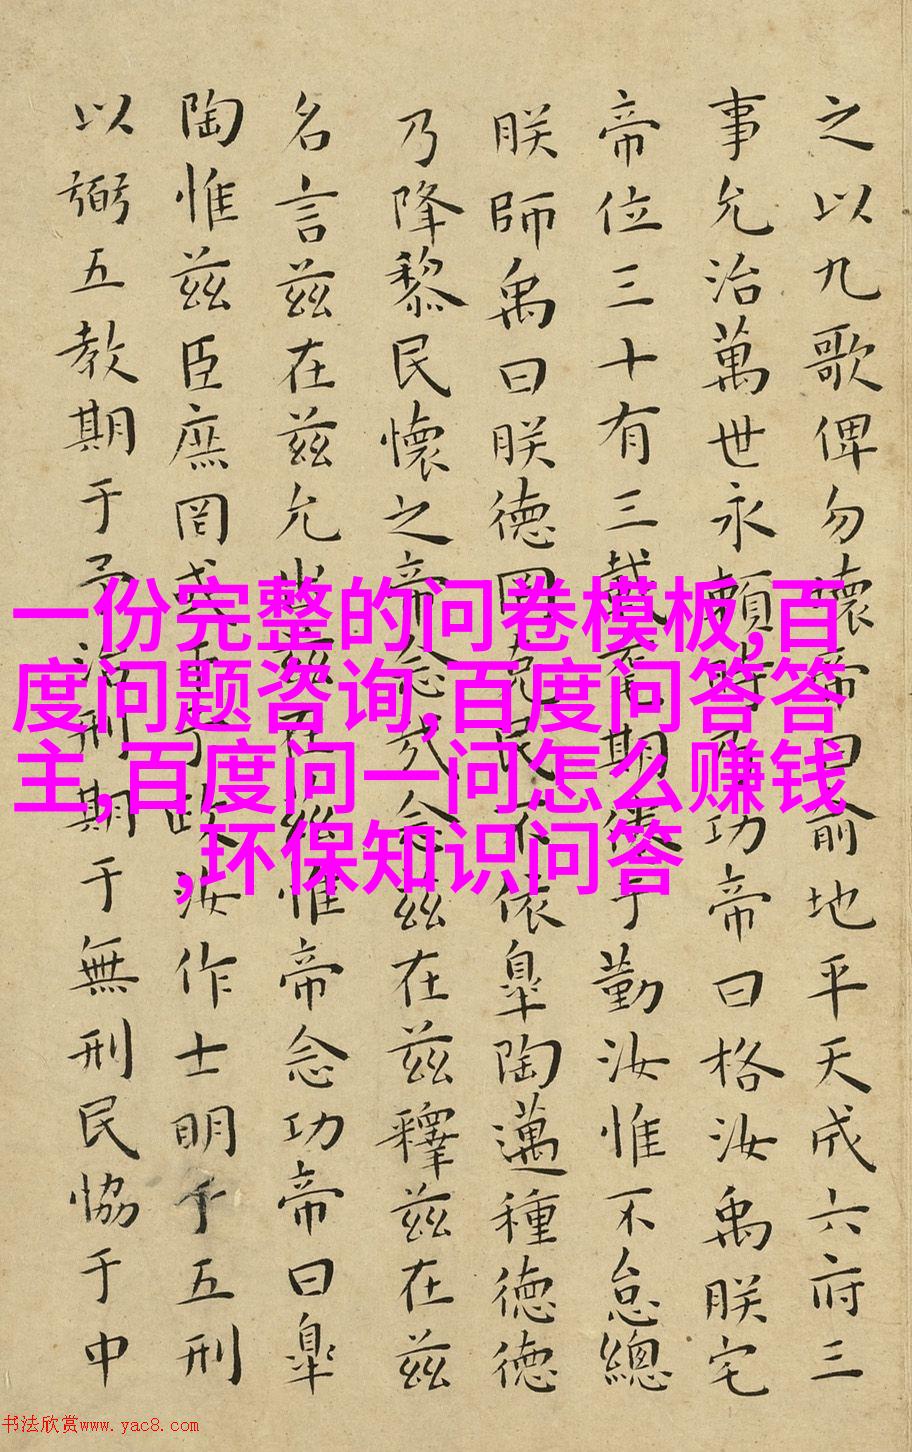 之以九歌俾勿壞帝曰俞地平天成六府三
事允治萬世永賴時乃功帝曰格汝禹朕宅
帝位三十有三載耄期倦于勤汝惟不怠總
朕師禹曰朕德罔克民不依皐陶邁種德德
乃降黎民懷之帝念哉念茲在茲釋茲在茲
名言茲在茲允出茲在茲惟帝念功帝曰皐
陶惟茲臣庶罔或干予政汝作士明于五刑
以弼五教期于予治刑期于無刑民協于中
一份完整的问卷模板,百
度问题咨询,百度问答答
主,百度问一问怎么赚钱
,环保知识问答
书法欣赏www.yac8.com